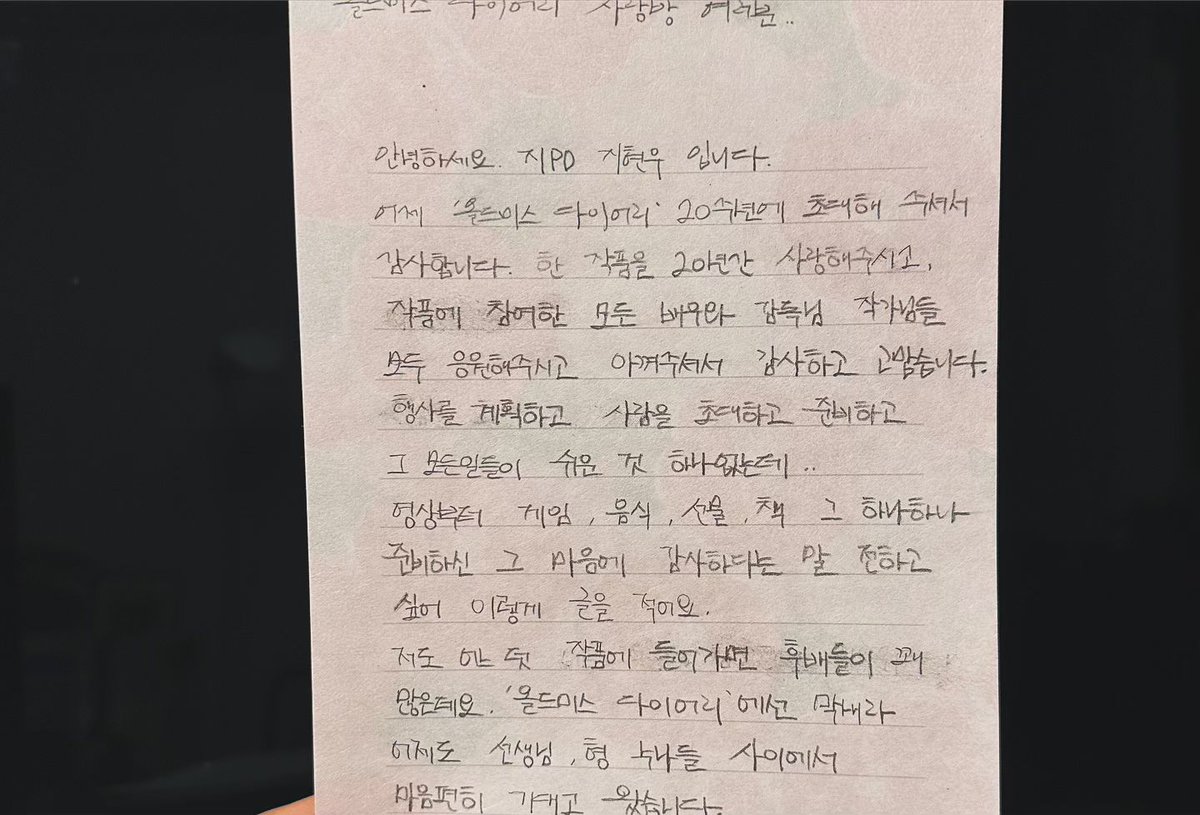 올드미스 다이어리 사랑방 여러분..
안녕하세요. 지PD 지현우 입니다.
어제 '올드미스 다이어리' 20주년에 초대해 주셔서
감사합니다. 한 작품을 20년간 사랑해주시고,
작품에 참여한 모든 배우와 감독님 작가님들
모두 응원해주시고 아껴주셔서 감사하고 고맙습니다.
행사를 계획하고 사람을 초대하고 준비하고
그 모든일들이 쉬운 것 하나없는데..
영상부터 게임, 음식, 선물, 책 그 하나하나
준비하신 그 마음에 감사하다는 말 전하고
싶어 이렇게 글을 적어요.
저도 어느 덧 작품에 들어가면 후배들이 꽤
많은데요. '올드미스 다이어리'에선 막내라
어제도 선생님, 형 누나들 사이에서
마음편히 기대고 왔습니다.